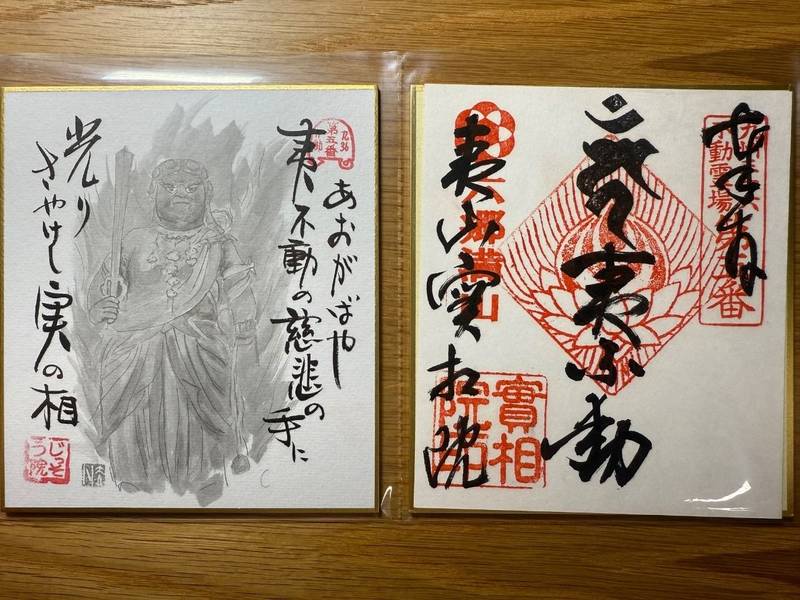 あおがばや
夷不動の慈悲の手に
光り
さやけし実の相
第五番
じっそう院
不動霊場
第五番
夷不動
六郷満山
夷山実相院
實相院